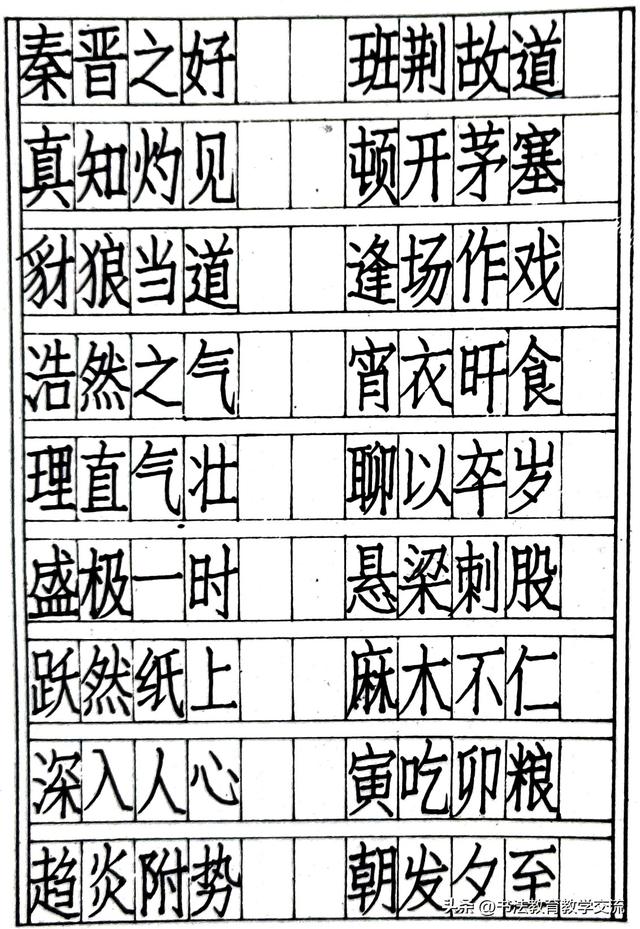 秦晋之好 班荆故道
真知灼见 顿开茅塞
豺狼当道 逢场作戏
浩然之气 宵衣旰食
理直气壮 聊以卒岁
盛极一时 悬梁刺股
跃然纸上 麻木不仁
深入人心 寅吃卯粮
趋炎附势 朝发夕至
头条 @书法教育教学交流